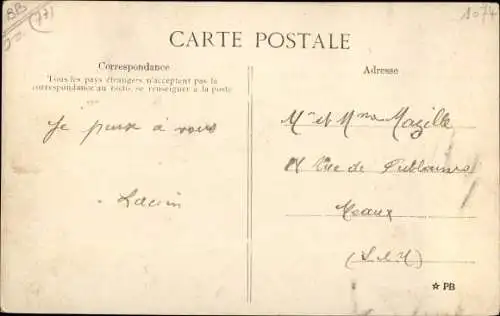 BB
(77)
1074
CARTE POSTALE
Correspondance
Tous les pays étrangers n'acceptent pas la
correspondance au recto, se renseigner à la poste
Je pense à vous
Adresse
Mr et Mme Mazille
Rue de
Meaux
(S.&M)
☆ PB